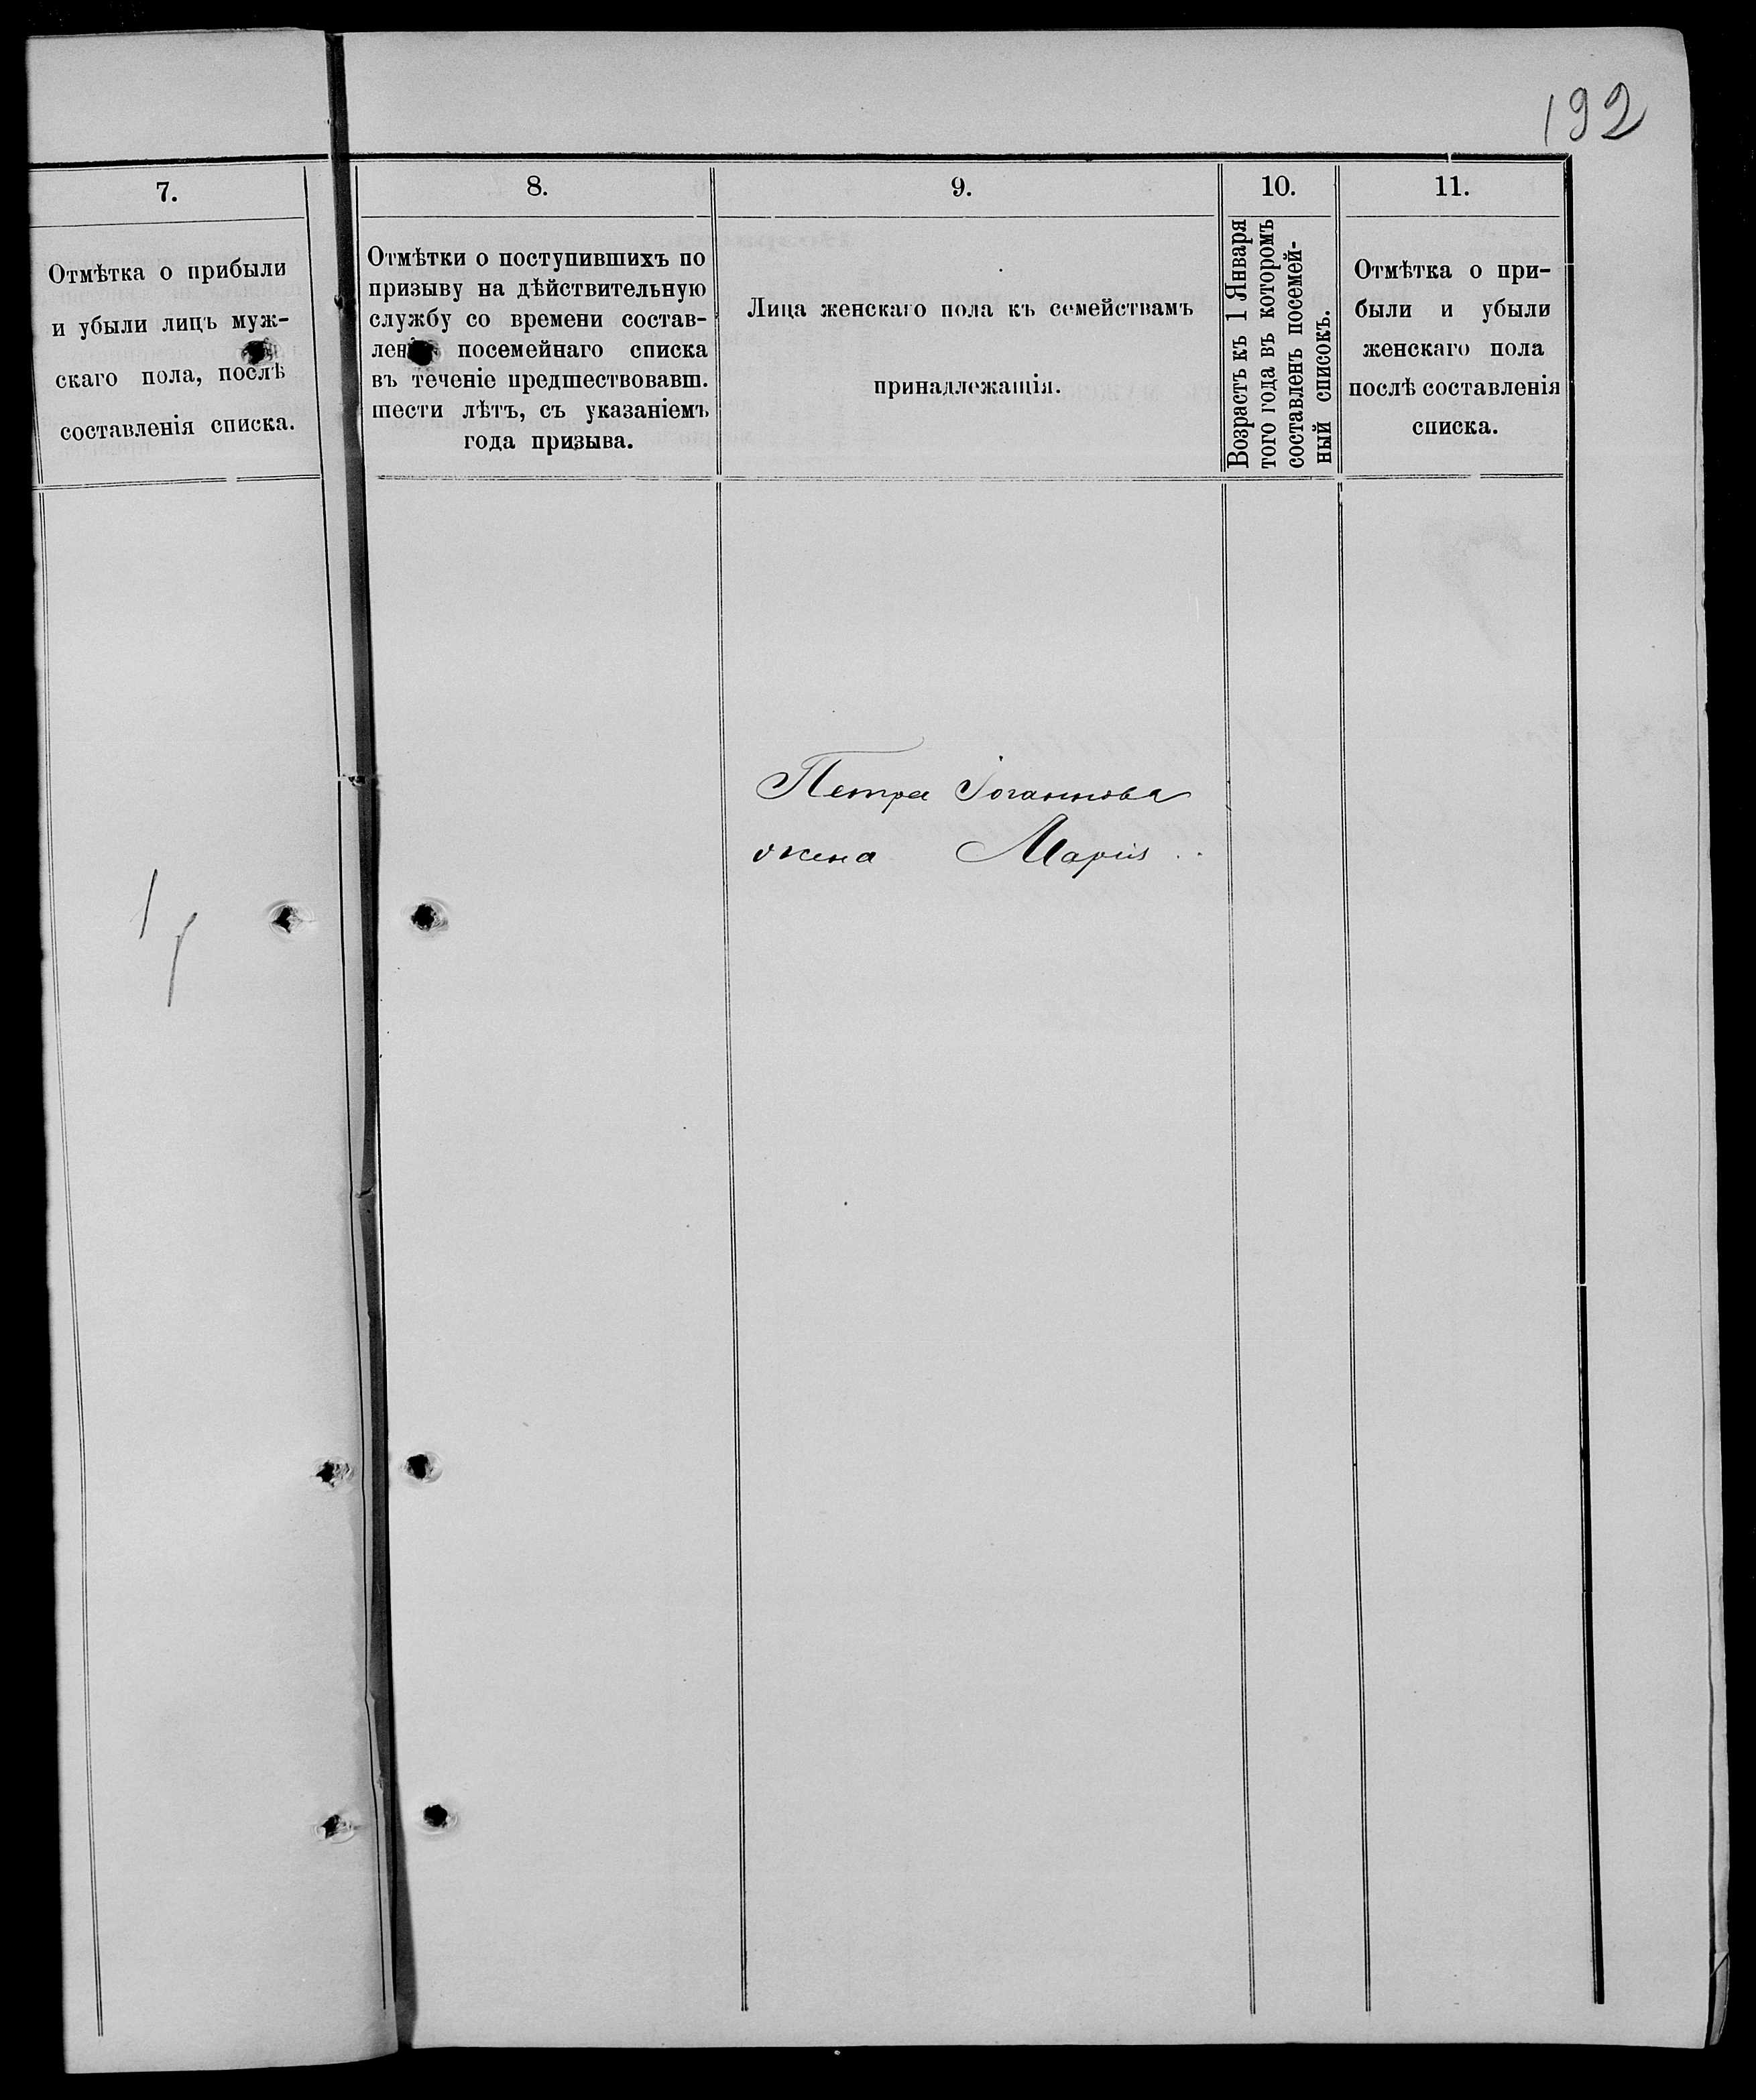 192
7.
Отмѣтка о прибыли
и убыли лицъ муж-
скаго пола, послѣ
составленія списка.
8.
Отмѣтки о поступившихъ по
призыву на дѣйствительную
службу со времени состав-
ленія посемейнаго списка
въ теченіе предшествовавш.
шести лѣтъ, съ указаніемъ
года призыва.
9.
Лица женскаго пола къ семействамъ
принадлежащія.
10.
Возрастъ къ 1 Января
того года въ которомъ
составленъ посемей-
ный списокъ.
11.
Отмѣтка о при-
были и убыли
женскаго пола
послѣ составленія
списка.
Петра Іоганнова
жена Марія